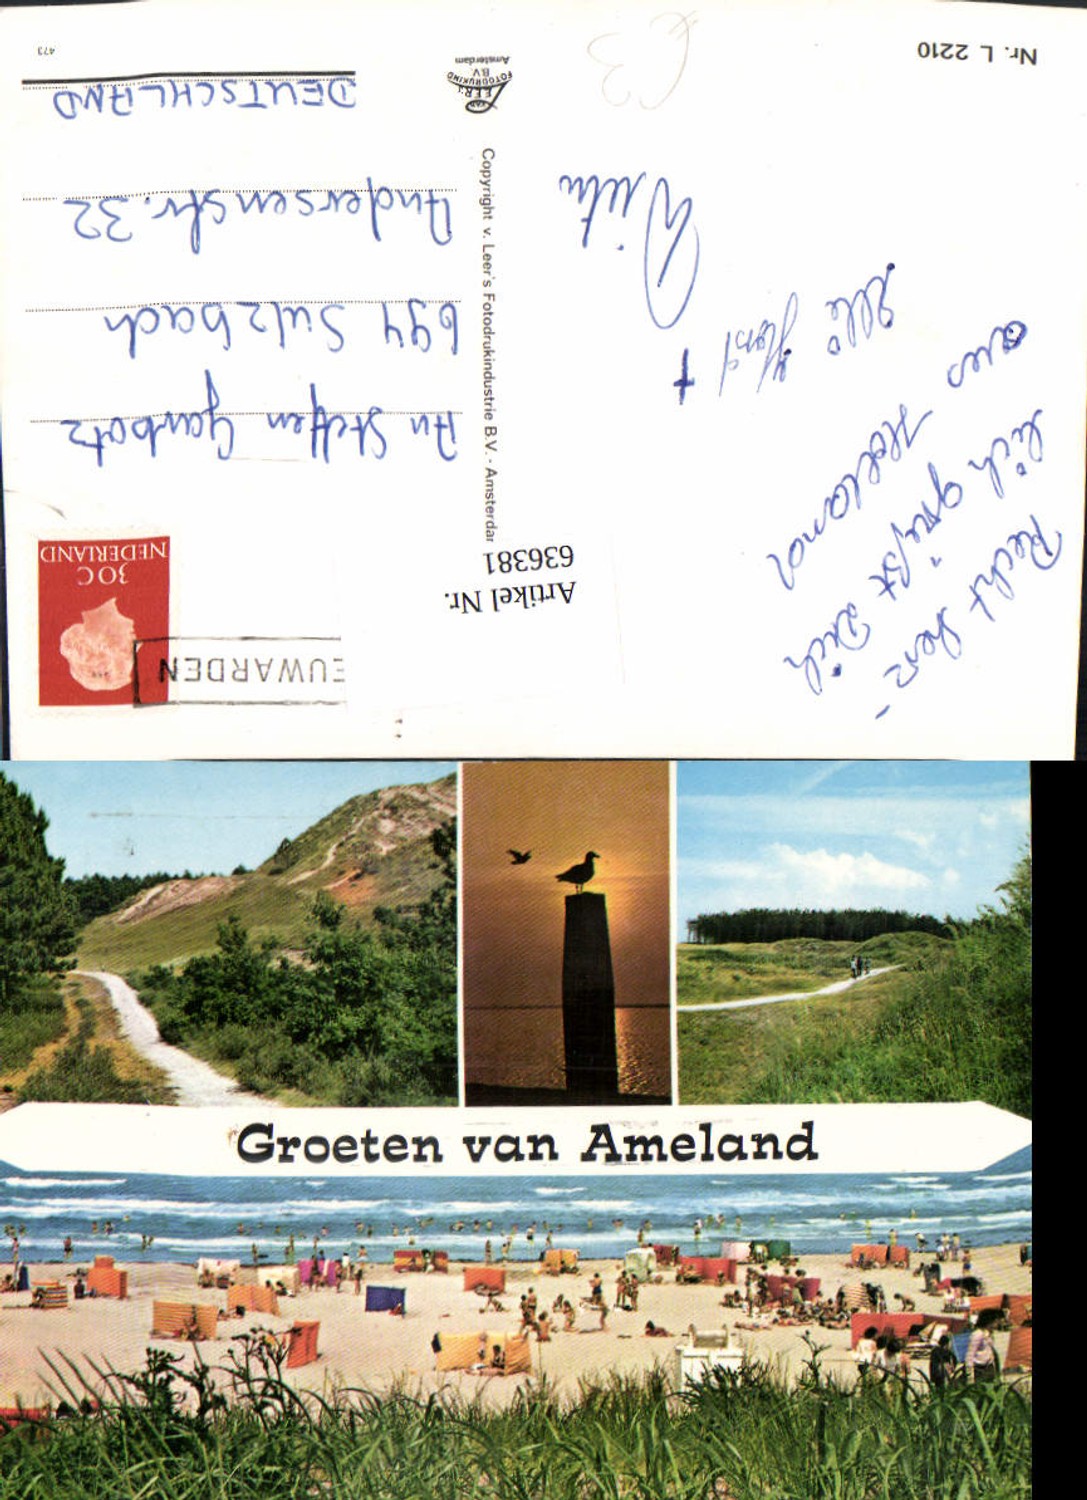 Nr. L 2210
Recht herz-
lich grüßt Dich
aus Holland
Horst +
Copyright v. Leer's Fotodrukindustrie B.V. - Amsterdam
VAN
LEER'S
FOTODRUKIND
B.V.
Amsterdam
€3
Artikel Nr.
636381
EUWARDEN
30 C
NEDERLAND
An Steffen Garbotz
694 Sulzbach
Andersenstr. 32
DEUTSCHLAND
473
Groeten van Ameland